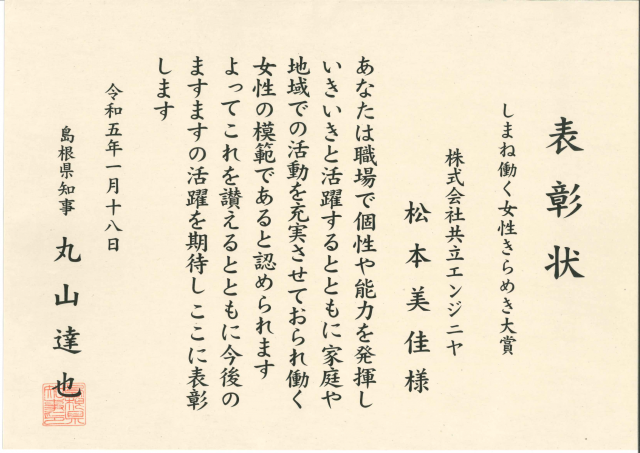 表彰状
しまね働く女性きらめき大賞
株式会社共立エンジニヤ
松本美佳様
あなたは職場で個性や能力を発揮し
いきいきと活躍するとともに家庭や
地域での活動を充実させておられ働く
女性の模範であると認められます
よってこれを讃えるとともに今後の
ますますの活躍を期待しここに表彰
します
令和五年一月十八日
島根県知事 丸山達也